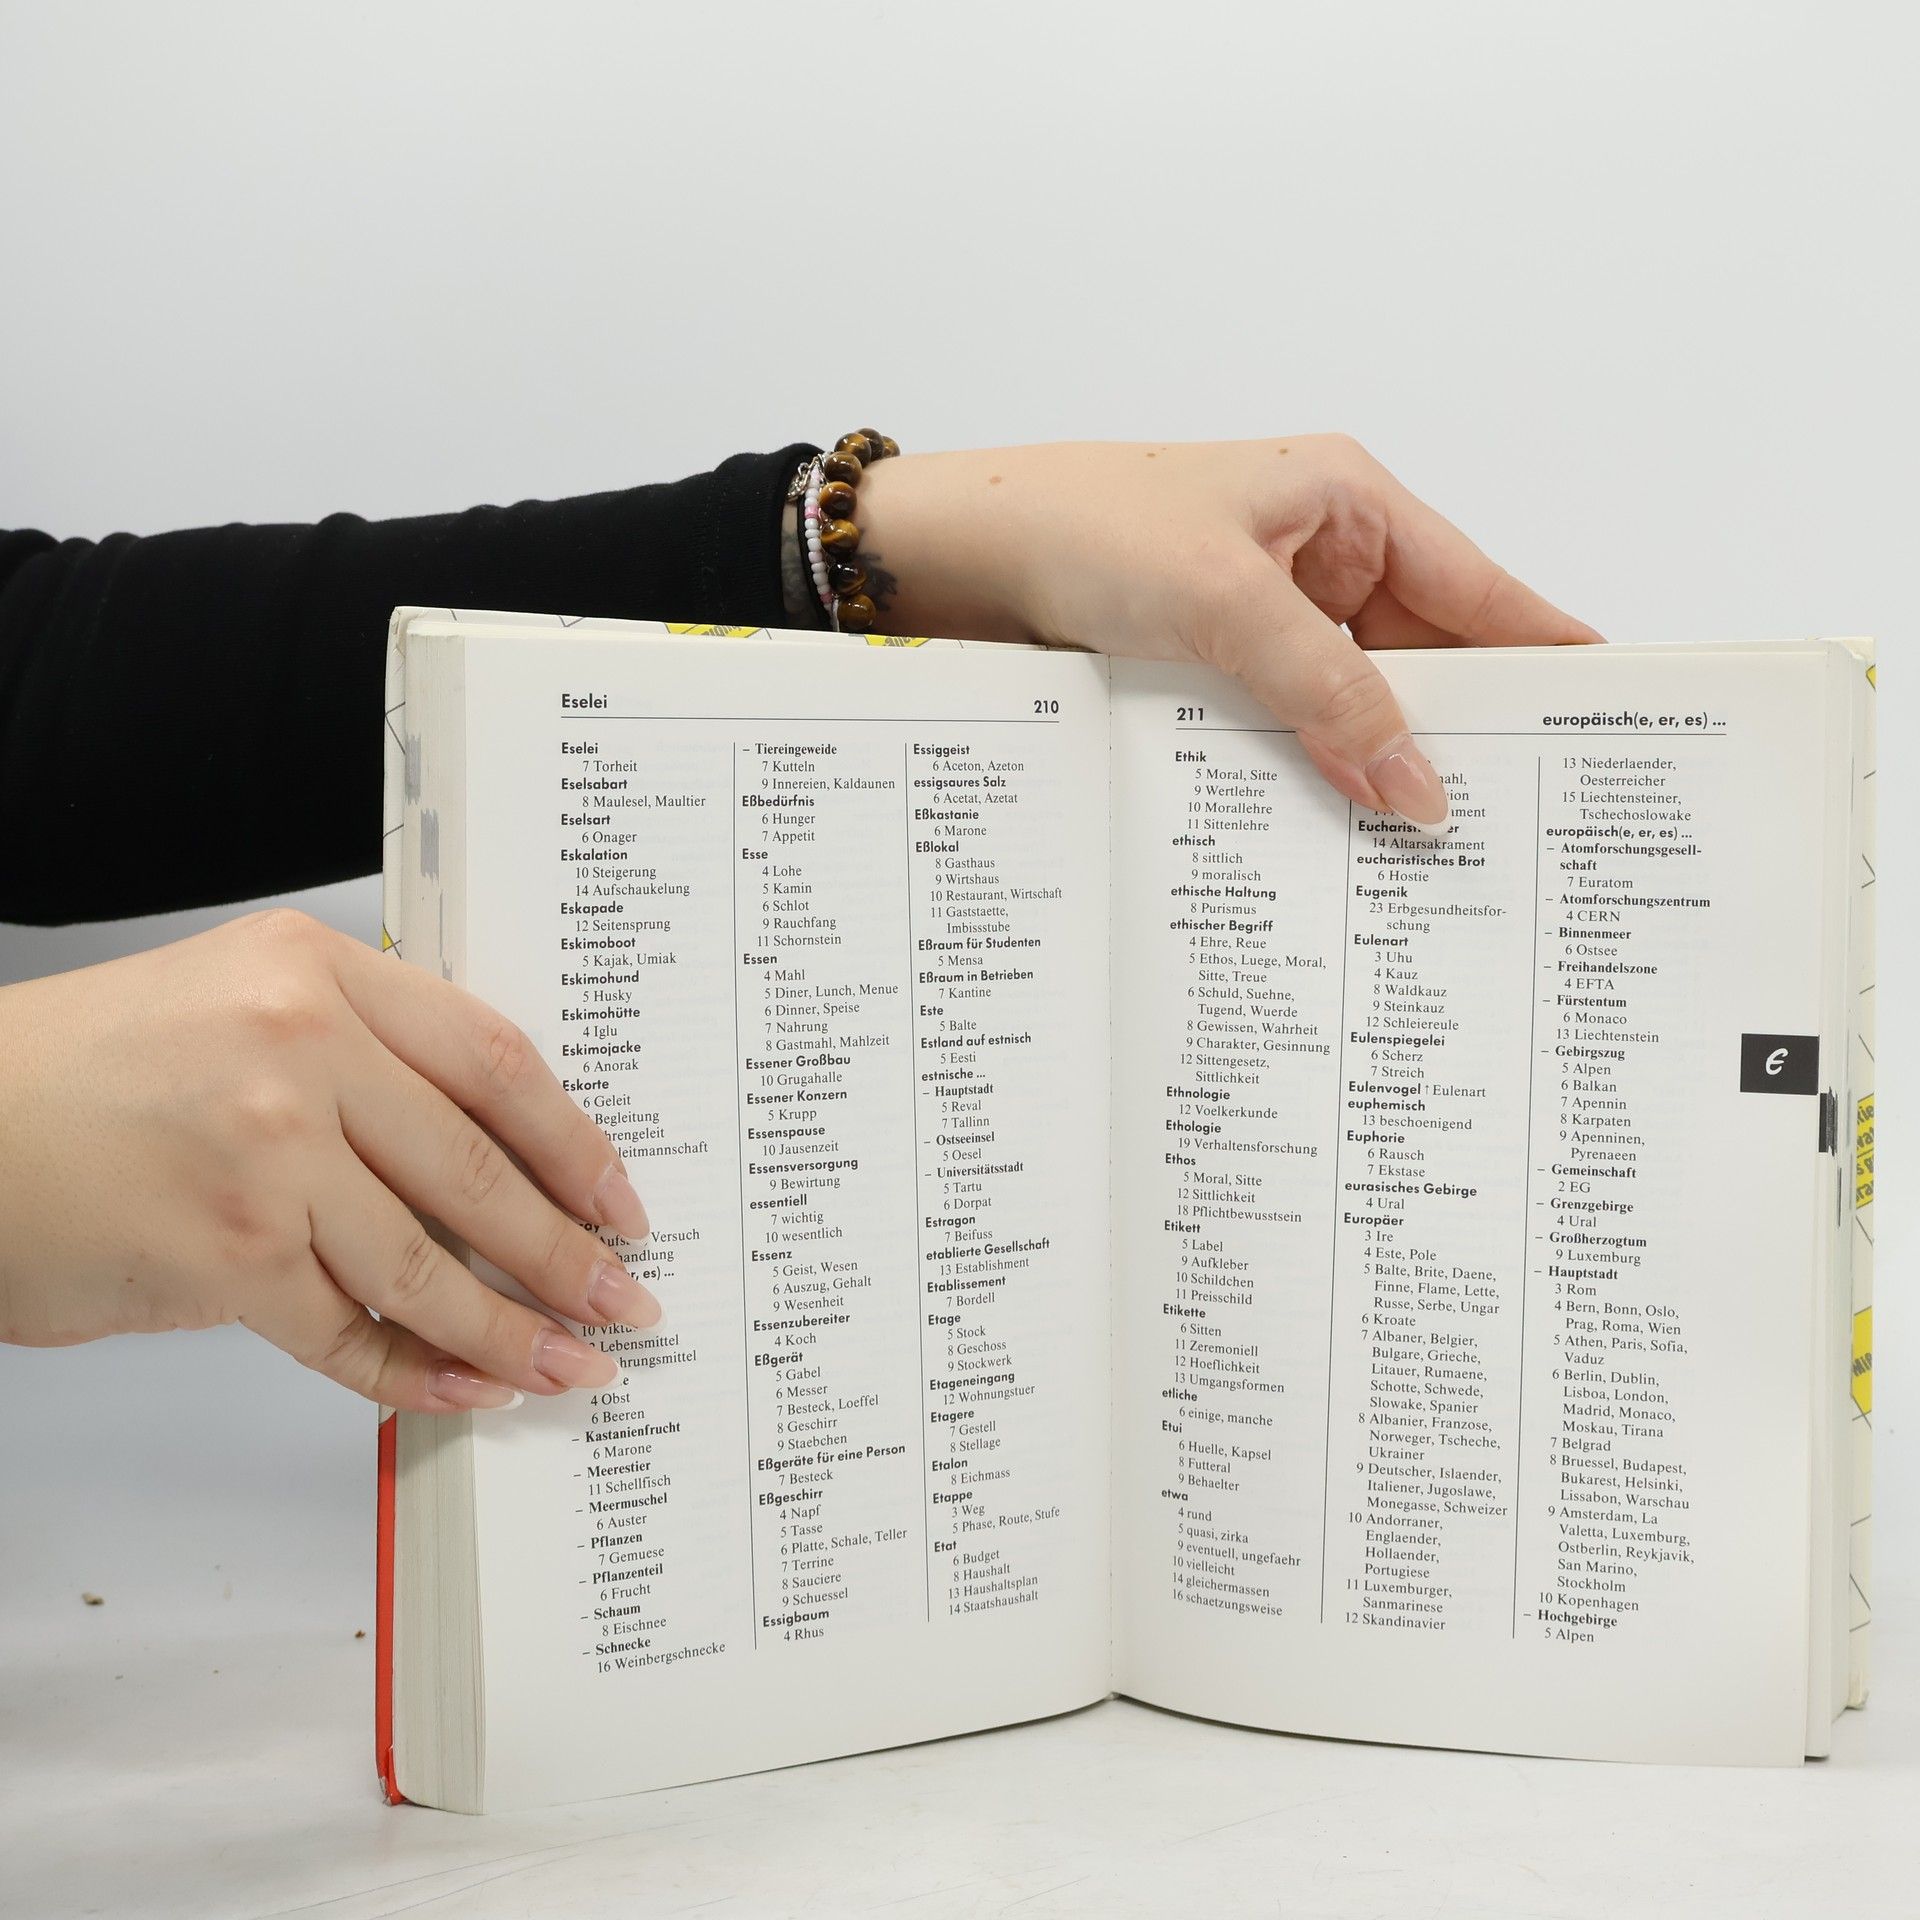 Eselei 210
Eselei
7 Torheit
Eselsabart
8 Maulesel, Maultier
Eselsart
6 Onager
Eskalation
10 Steigerung
14 Aufschaukelung
Eskapade
12 Seitensprung
Eskimoboot
5 Kajak, Umiak
Eskimohund
5 Husky
Eskimohütte
4 Iglu
Eskimojacke
6 Anorak
Eskorte
6 Geleit
Begleitung
Versuch
er, es) ...
10
Lebensmittel
4 Obst
6 Beeren
– Kastanienfrucht
6 Marone
– Meerestier
11 Schellfisch
– Meermuschel
6 Auster
– Pflanzen
7 Gemuese
– Pflanzenteil
6 Frucht
– Schaum
8 Eischnee
– Schnecke
16 Weinbergschnecke
– Tiereingeweide
7 Kutteln
9 Innereien, Kaldaunen
Eßbedürfnis
6 Hunger
7 Appetit
Esse
4 Lohe
5 Kamin
6 Schlot
9 Rauchfang
11 Schornstein
Essen
4 Mahl
5 Diner, Lunch, Menue
6 Dinner, Speise
7 Nahrung
8 Gastmahl, Mahlzeit
Essener Großbau
10 Grugahalle
Essener Konzern
5 Krupp
Essenspause
10 Jausenzeit
Essensversorgung
9 Bewirtung
essentiell
7 wichtig
10 wesentlich
Essenz
5 Geist, Wesen
6 Auszug, Gehalt
9 Wesenheit
Essenzubereiter
4 Koch
Eßgerät
5 Gabel
6 Messer
7 Besteck, Loeffel
8 Geschirr
9 Staebchen
Eßgeräte für eine Person
7 Besteck
Eßgeschirr
4 Napf
5 Tasse
6 Platte, Schale, Teller
7 Terrine
8 Sauciere
9 Schuessel
Essigbaum
4 Rhus
Essiggeist
6 Aceton, Azeton
essigsaures Salz
6 Acetat, Azetat
Eßkastanie
6 Marone
Eßlokal
8 Gasthaus
9 Wirtshaus
10 Restaurant, Wirtschaft
11 Gaststaette,
Imbissstube
Eßraum für Studenten
5 Mensa
Eßraum in Betrieben
7 Kantine
Este
5 Balte
Estland auf estnisch
5 Eesti
estnische ...
– Hauptstadt
5 Reval
7 Tallinn
– Ostseeinsel
5 Oesel
– Universitätsstadt
5 Tartu
6 Dorpat
Estragon
7 Beifuss
etablierte Gesellschaft
13 Establishment
Etablissement
7 Bordell
Etage
5 Stock
8 Geschoss
9 Stockwerk
Etageneingang
12 Wohnungstuer
Etagere
7 Gestell
8 Stellage
Etalon
8 Eichmass
Etappe
3 Weg
5 Phase, Route, Stufe
Etat
6 Budget
8 Haushalt
13 Haushaltsplan
14 Staatshaushalt
211 europäisch(e, er, es) ...
Ethik
5 Moral, Sitte
9 Wertlehre
10 Morallehre
11 Sittenlehre
ethisch
8 sittlich
9 moralisch
ethische Haltung
8 Purismus
ethischer Begriff
4 Ehre, Reue
5 Ethos, Luege, Moral,
Sitte, Treue
6 Schuld, Suehne,
Tugend, Wuerde
8 Gewissen, Wahrheit
9 Charakter, Gesinnung
12 Sittengesetz,
Sittlichkeit
Ethnologie
12 Voelkerkunde
Ethologie
19 Verhaltensforschung
Ethos
5 Moral, Sitte
12 Sittlichkeit
18 Pflichtbewusstsein
Etikett
5 Label
9 Aufkleber
10 Schildchen
11 Preisschild
Etikette
6 Sitten
11 Zeremoniell
12 Hoeflichkeit
13 Umgangsformen
etliche
6 einige, manche
Etui
6 Huelle, Kapsel
8 Futteral
9 Behaelter
etwa
4 rund
5 quasi, zirka
9 eventuell, ungefaehr
10 vielleicht
14 gleichermassen
16 schaetzungsweise
14 Altarsakrament
eucharistisches Brot
6 Hostie
Eugenik
23 Erbgesundheitsfor-
schung
Eulenart
3 Uhu
4 Kauz
8 Waldkauz
9 Steinkauz
12 Schleiereule
Eulenspiegelei
6 Scherz
7 Streich
Eulenvogel ↑ Eulenart
euphemisch
13 beschoenigend
Euphorie
6 Rausch
7 Ekstase
eurasisches Gebirge
4 Ural
Europäer
3 Ire
4 Este, Pole
5 Balte, Brite, Daene,
Finne, Flame, Lette,
Russe, Serbe, Ungar
6 Kroate
7 Albaner, Belgier,
Bulgare, Grieche,
Litauer, Rumaene,
Schotte, Schwede,
Slowake, Spanier
8 Albanier, Franzose,
Norweger, Tscheche,
Ukrainer
9 Deutscher, Islaender,
Italiener, Jugoslawe,
Monegasse, Schweizer
10 Andorraner,
Englaender,
Hollaender,
Portugiese
11 Luxemburger,
Sanmarinese
12 Skandinavier
13 Niederlaender,
Oesterreicher
15 Liechtensteiner,
Tschechoslowake
europäisch(e, er, es) ...
– Atomforschungsgesell-
schaft
7 Euratom
– Atomforschungszentrum
4 CERN
– Binnenmeer
6 Ostsee
– Freihandelszone
4 EFTA
– Fürstentum
6 Monaco
13 Liechtenstein
– Gebirgszug
5 Alpen
6 Balkan
7 Apennin
8 Karpaten
9 Apenninen,
Pyrenaeen
– Gemeinschaft
2 EG
– Grenzgebirge
4 Ural
– Großherzogtum
9 Luxemburg
– Hauptstadt
3 Rom
4 Bern, Bonn, Oslo,
Prag, Roma, Wien
5 Athen, Paris, Sofia,
Vaduz
6 Berlin, Dublin,
Lisboa, London,
Madrid, Monaco,
Moskau, Tirana
7 Belgrad
8 Bruessel, Budapest,
Bukarest, Helsinki,
Lissabon, Warschau
9 Amsterdam, La
Valetta, Luxemburg,
Ostberlin, Reykjavik,
San Marino,
Stockholm
10 Kopenhagen
– Hochgebirge
5 Alpen
e